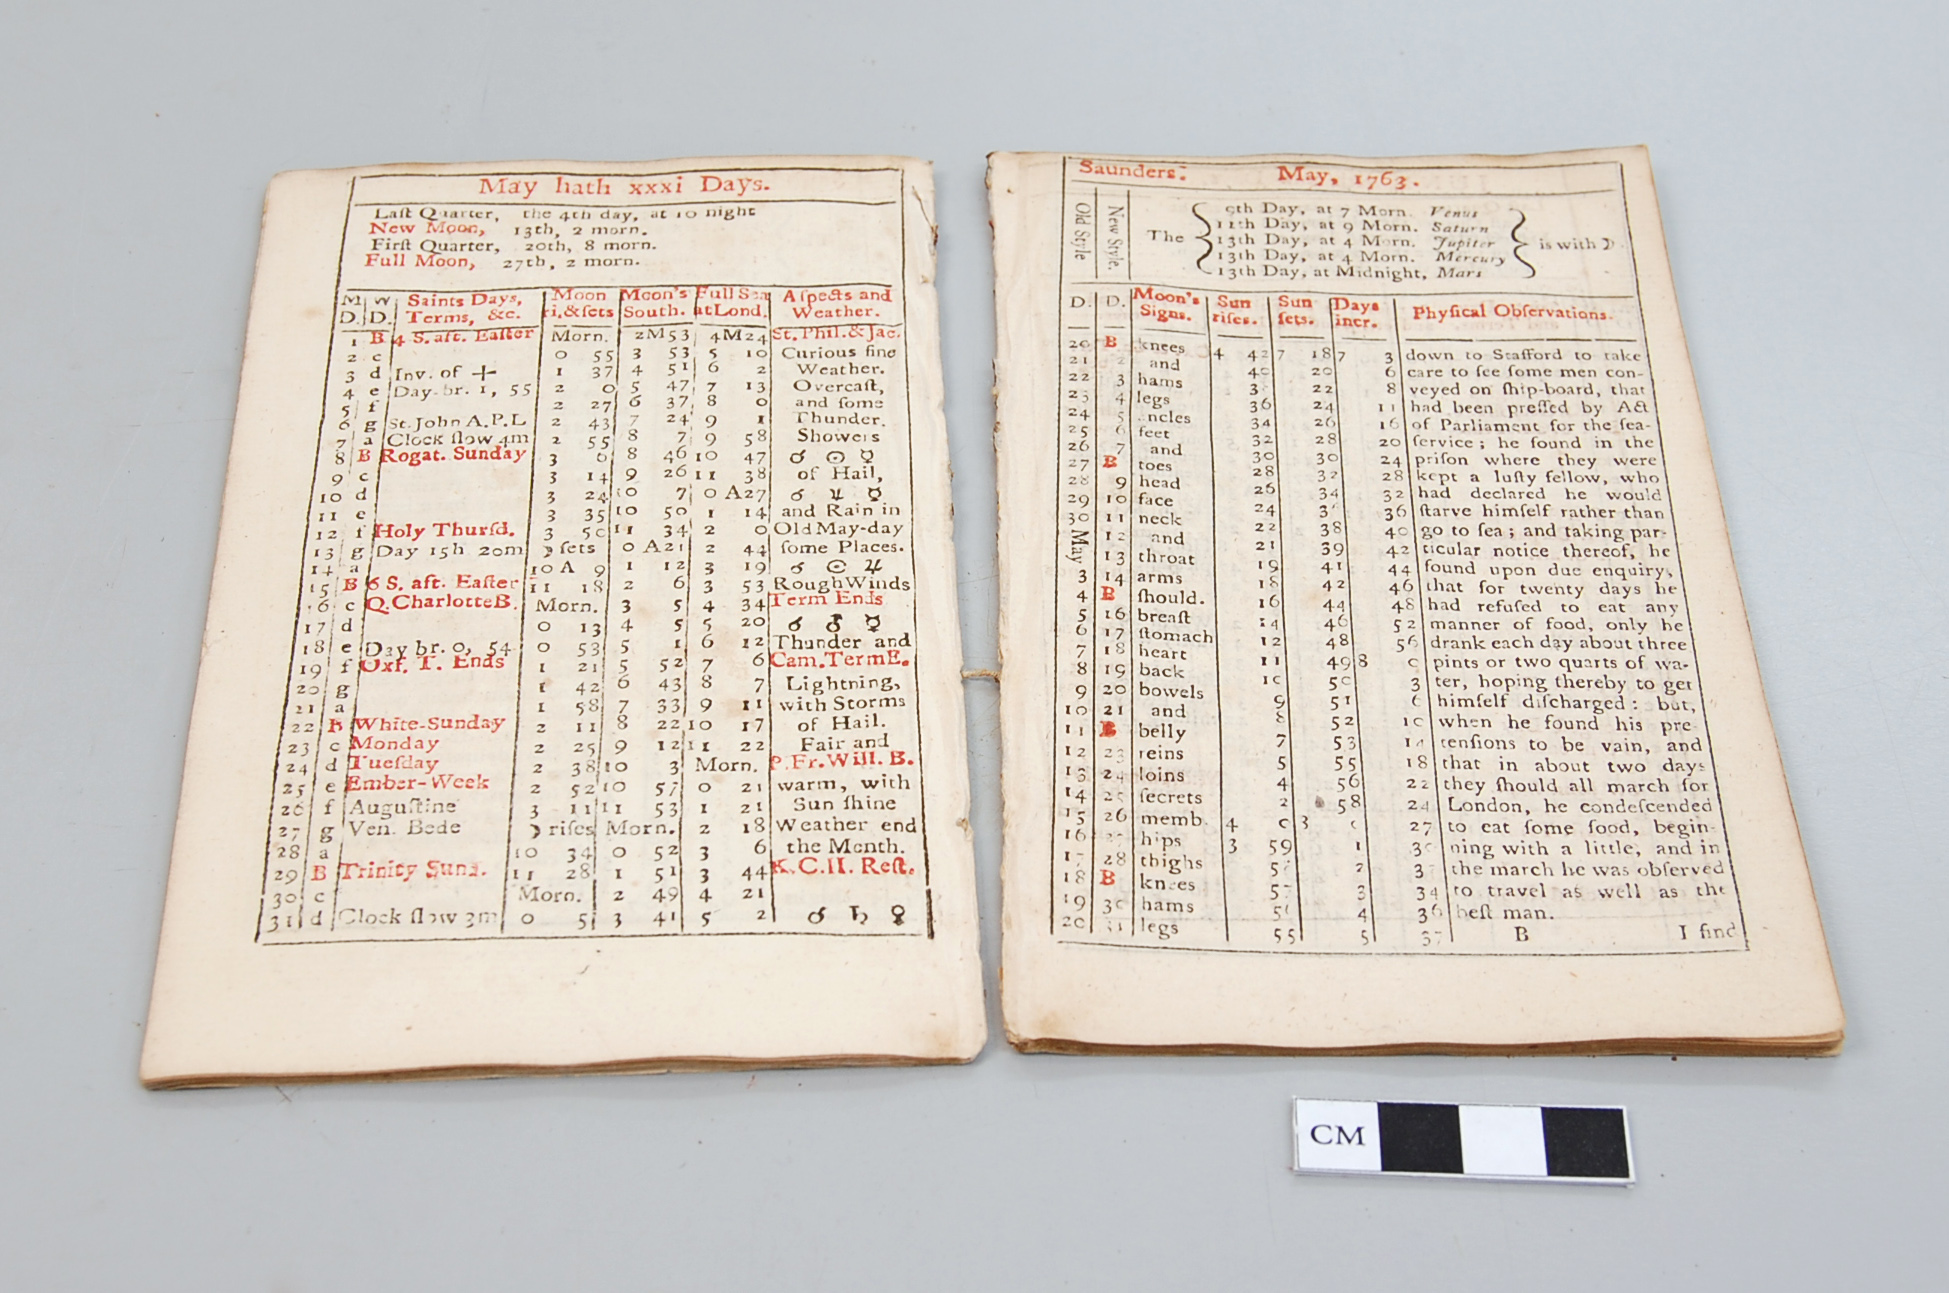 May hath xxxi Days.
Laſt Quarter, the 4th day, at 10 night
New Moon, 13th, 2 morn.
Firſt Quarter, 20th, 8 morn.
Full Moon, 27th, 2 morn.
M D. W D. Saints Days, Terms, &c. Moon ri, & ſets Moon's South. Full Sea at Lond. Aſpects and Weather.
1 B 4 S. aft. Eaſter Morn. 2M53 4M24 St. Phil. & Jac.
2 c 0 55 3 53 5 10 Curious fine
3 d Inv. of + 1 37 4 51 6 2 Weather.
4 e Day br. 1, 55 2 0 5 47 7 13 Overcaſt,
5 f 2 27 6 37 8 0 and ſome
6 g St. John A.P.L 2 43 7 24 9 1 Thunder.
7 a Clock ſlow 4m 2 55 8 7 9 58 Showers
8 B Rogat. Sunday 3 6 8 46 10 47 ☌ ☉ ☿
9 c 3 14 9 26 11 38 of Hail,
10 d 3 24 10 7 0 A27 ☌ ♃ ☿
11 e 3 35 10 50 1 14 and Rain in
12 f Holy Thurſd. 3 50 11 34 2 0 Old May-day
13 g Day 15h 20m ☽ ſets 0 A21 2 44 ſome Places.
14 a 10 A 9 1 12 3 19 ☌ ☉ ♃
15 B 6 S. aft. Eaſter 11 18 2 6 3 53 Rough Winds
16 c Q. Charlotte B. Morn. 3 5 4 34 Term Ends
17 d 0 13 4 5 5 20 ☌ ♂ ☿
18 e Day br. 0, 54 0 53 5 1 6 12 Thunder and
19 f Oxf. T. Ends 1 21 5 52 7 6 Cam. Term E.
20 g 1 42 6 43 8 7 Lightning,
21 a 1 58 7 33 9 11 with Storms
22 B White-Sunday 2 11 8 22 10 17 of Hail.
23 c Monday 2 25 9 12 11 22 Fair and
24 d Tueſday 2 38 10 3 Morn. P. Fr. Will. B.
25 e Ember-Week 2 52 10 57 0 21 warm, with
26 f Auguſtine 3 11 11 53 1 21 Sun ſhine
27 g Ven. Bede ☽ riſes Morn. 2 18 Weather end
28 a 10 34 0 52 3 6 the Month.
29 B Trinity Sund. 11 28 1 51 3 44 K. C. II. Reſt.
30 c Morn. 2 49 4 21
31 d Clock ſlow 3m 0 5 3 41 5 2 ☌ ♄ ♀
Saunders. May, 1763.
Old Style
New Style.
The
9th Day, at 7 Morn. Venus
11th Day, at 9 Morn. Saturn
13th Day, at 4 Morn. Jupiter
13th Day, at 4 Morn. Mercury
13th Day, at Midnight, Mars
is with ☽
D. D. Moon's Signs. Sun riſes. Sun ſets. Days incr. Phyſical Obſervations.
20 B knees 4 42 7 18 7 3 down to Stafford to take
21 2 and 40 20 6 care to ſee ſome men con-
22 3 hams 22 8 veyed on ſhip-board, that
23 4 legs 36 24 11 had been preſſed by Act
24 5 ncles 34 26 16 of Parliament for the ſea-
25 6 feet 32 28 20 ſervice; he found in the
26 7 and 30 30 24 priſon where they were
27 B toes 28 32 28 kept a luſty fellow, who
28 9 head 26 34 32 had declared he would
29 10 face 24 36 ſtarve himſelf rather than
30 11 neck 22 38 40 go to ſea; and taking par-
May 12 and 21 39 42 ticular notice thereof, he
13 throat 19 41 44 found upon due enquiry,
3 14 arms 18 42 46 that for twenty days he
4 B ſhould. 16 44 48 had refuſed to eat any
5 16 breaſt 14 46 52 manner of food, only he
6 17 ſtomach 12 48 56 drank each day about three
7 18 heart 11 49 8 0 pints or two quarts of wa-
8 19 back 10 50 3 ter, hoping thereby to get
9 20 bowels 9 51 6 himſelf diſcharged: but,
10 21 and 8 52 10 when he found his pre-
11 B belly 7 53 14 tenſions to be vain, and
12 23 reins 5 55 18 that in about two days
13 24 loins 4 56 22 they ſhould all march for
14 25 ſecrets 2 58 24 London, he condeſcended
15 26 memb. 4 0 8 27 to eat ſome food, begin-
16 hips 3 59 1 30 ning with a little, and in
17 28 thighs 2 the march he was obſerved
18 B knees 57 3 34 to travel as well as the
19 30 hams 4 36 beſt man.
20 31 legs 55 5 37 B I find
CM